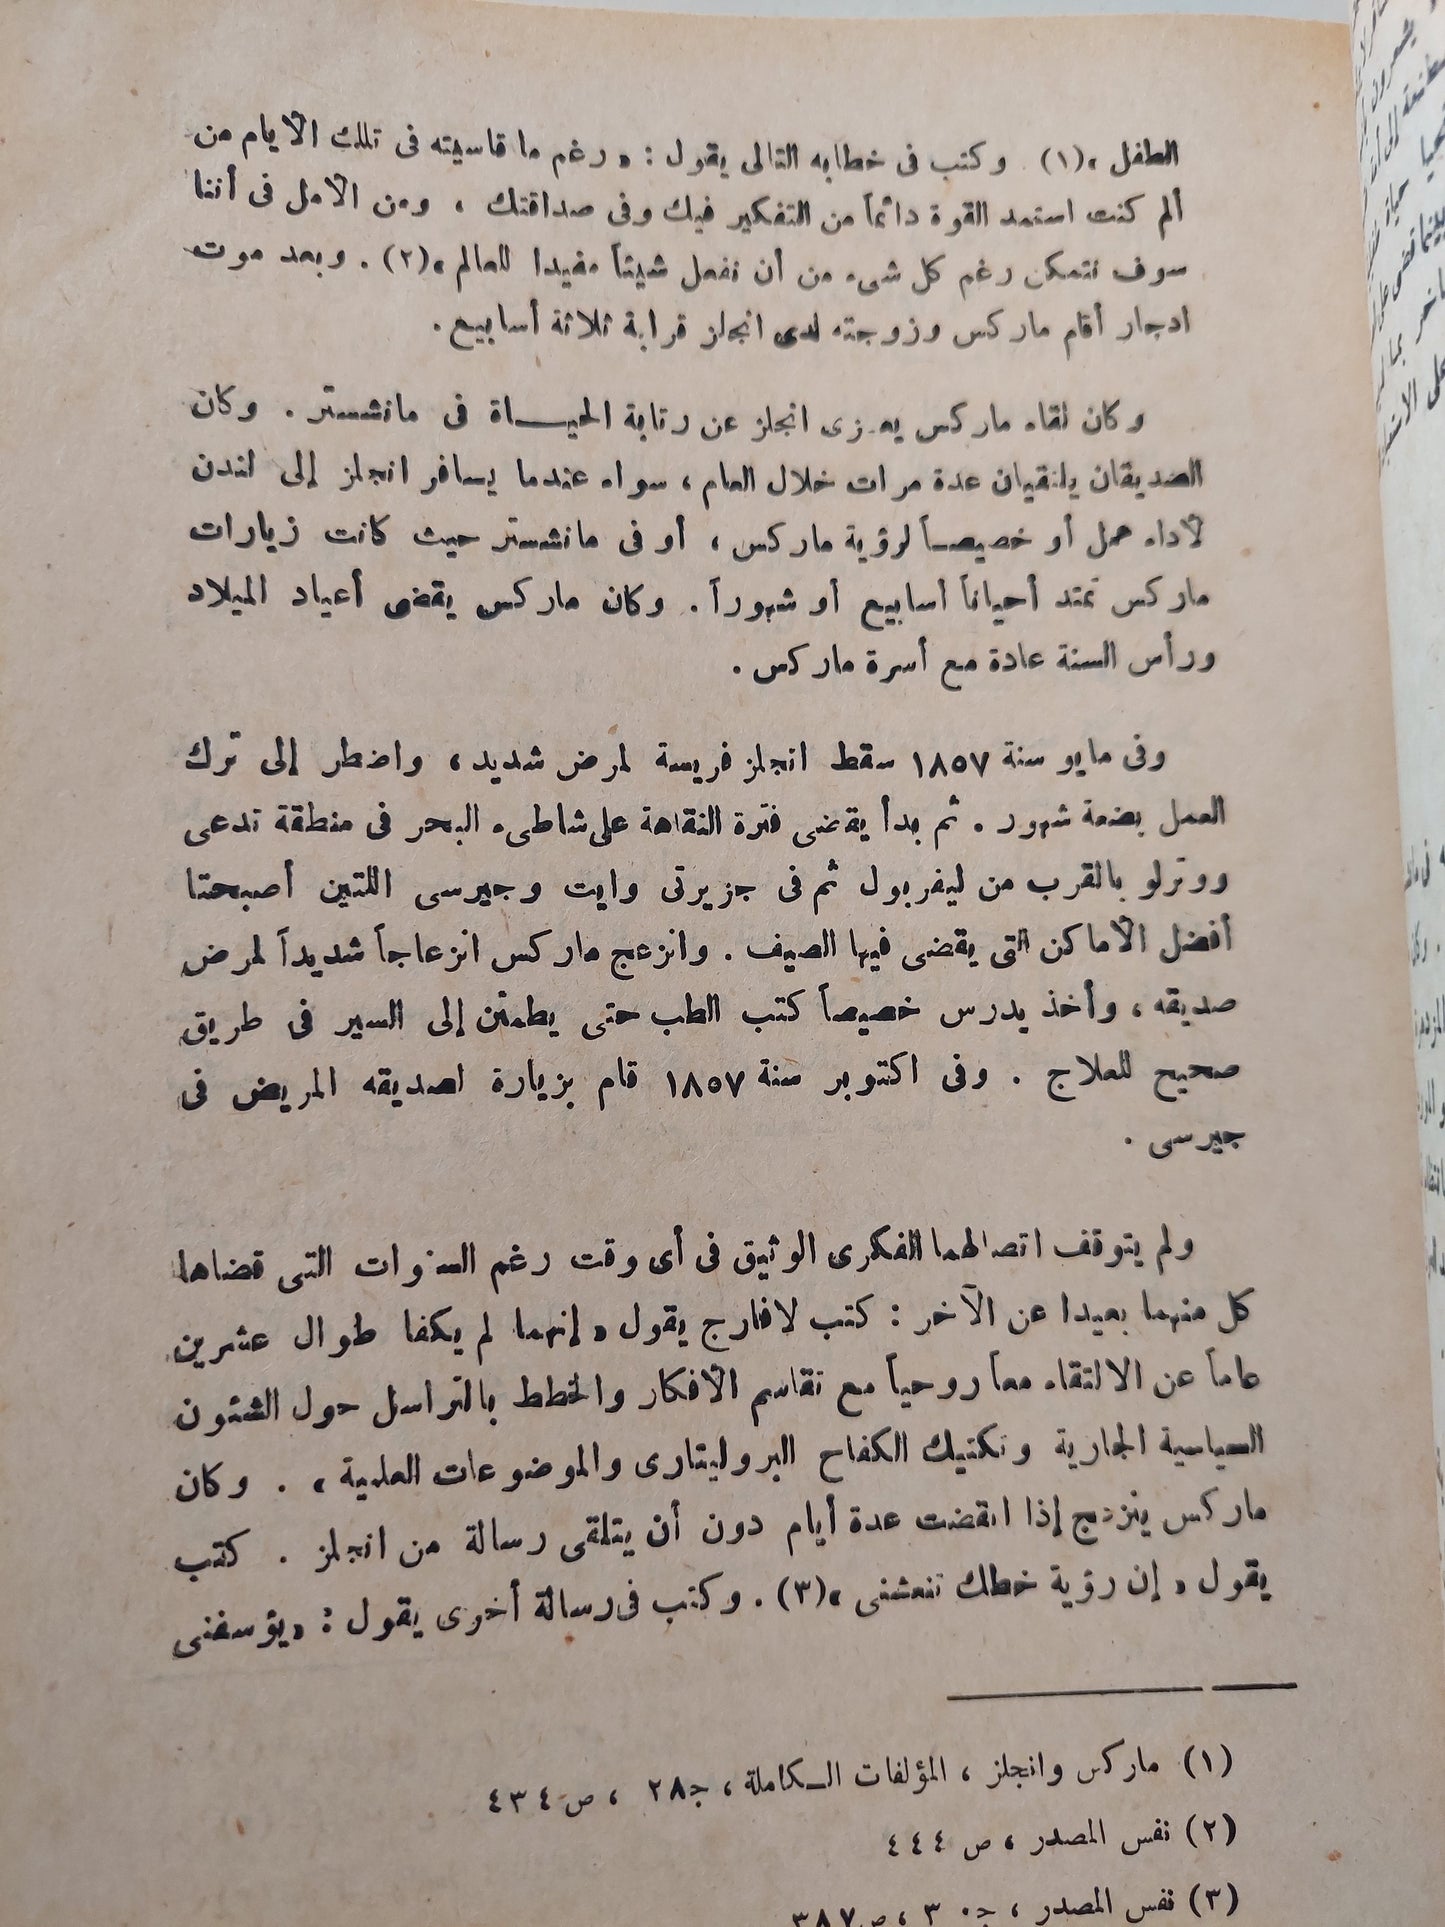 الطفل »(١) . وكتب فى خطابه التالى يقول : « رغم ما قاسيته فى تلك الأيام من
ألم كنت استمد القوة دائماً من التفكير فيك وفى صداقتك ، ومن الامل فى أننا
سوف نتمكن رغم كل شىء من أن نفعل شيئاً مفيدا للعالم »(٢) . وبعد موت
ادجار أقام ماركس وزوجته لدى انجلز قرابة ثلاثة أسابيع .
وكان لقاء ماركس يعزى انجلز عن رتابة الحيــاة فى مانشستر . وكان
الصديقان يلتقيان عدة مرات خلال العام ، سواء عندما يسافر انجلز إلى لندن
لأداء عمل أو خصيصــاً لرؤية ماركس ، أو فى مانشستر حيث كانت زيارات
ماركس تمتد أحياناً أسابيع أو شهوراً . وكان ماركس يقضى أعياد الميلاد
ورأس السنة عادة مع أسرة ماركس .
وفى مايو سنة ١٨٥٧ سقط انجلز فريسة لمرض شديد ، واضطر إلى ترك
العمل بضعة شهور . ثم بدأ يقضى فترة النقاهة على شاطىء البحر فى منطقة تدعى
ووترلو بالقرب من ليفربول ثم فى جزيرتى وايت وجيرسى اللتين أصبحتا
أفضل الأماكن التى يقضى فيها الصيف . وانزعج ماركس انزعاجاً شديداً لمرض
صديقه ، وأخذ يدرس خصيصاً كتب الطب حتى يطمئن إلى السير فى طريق
صحيح للعلاج . وفى اكتوبر سنة ١٨٥٧ قام بزيارة لصديقه المريض فى
جيرسى .
ولم يتوقف اتصالهما الفكرى الوثيق فى أى وقت رغم السنوات التى قضاها
كل منهما بعيدا عن الآخر : كتب لافارج يقول « إنهما لم يكفا طوال عشرين
عاماً عن الالتقاء معاً روحياً مع تقاسم الأفكار والخطط بالتراسل حول الشئون
السياسية الجارية وتكتيك الكفاح البروليتارى والموضوعات العلمية » . وكان
ماركس ينزعج إذا انقضت عدة أيام دون أن يتلقى رسالة من انجلز . كتب
يقول « إن رؤية خطك تنعشنى »(٣) . وكتب فى رسالة أخرى يقول : « يؤسفنى
(١) ماركس وانجلز ، المؤلفات الــكاملة ، جـ٢٨ ، ص ٤٣٤
(٢) نفس المصدر ، ص ٤٤٤
(٣) نفس المصدر ، جـ ٣٠ ، ص ٣٨٧